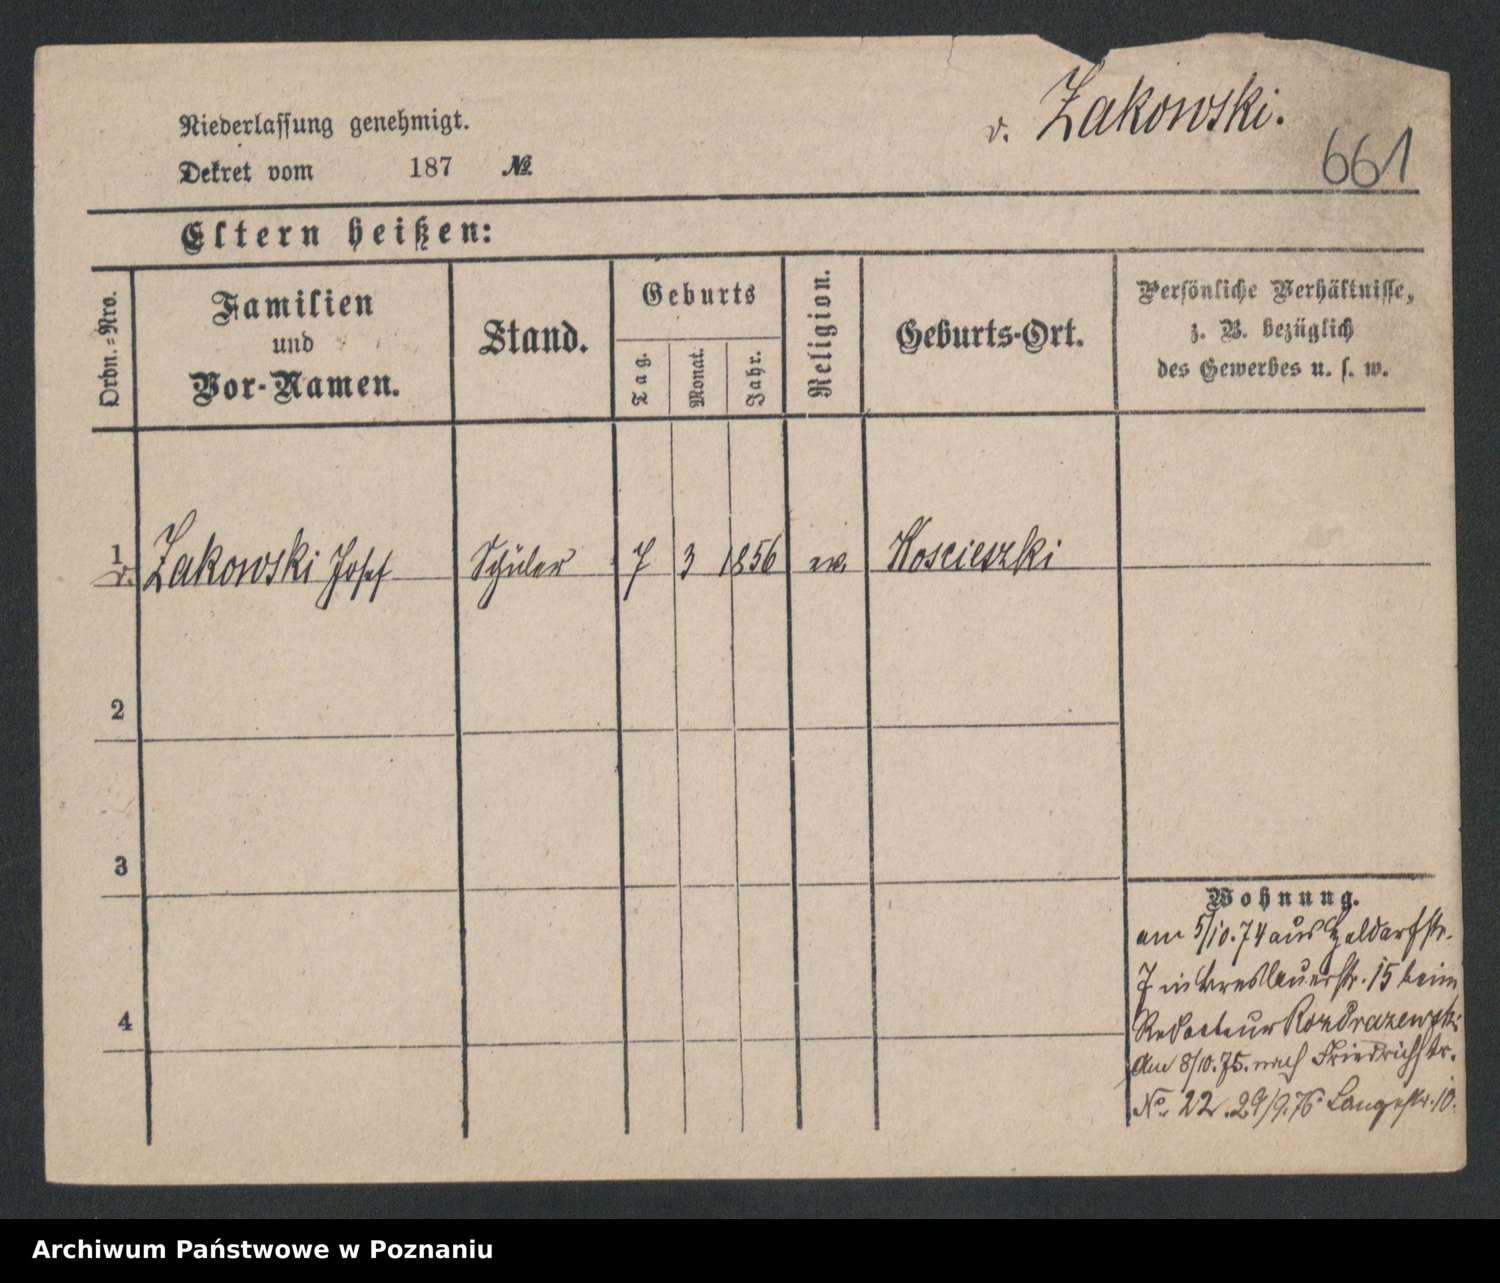 Niederlassung genehmigt.
Dekret vom 187 №
v. Zakowski.
661
Eltern heißen:
Ordn.-Nro.
Familien
und
Vor-Namen.
Stand.
Geburts
Tag.
Monat.
Jahr.
Religion.
Geburts-Ort.
Persönliche Verhältnisse,
z. B. bezüglich
des Gewerbes u. s. w.
1 v. Zakowski Josef Schüler 7 3 1856 Koscieszki
2
3
4
Wohnung.
am 5/10.74 aus
7 in Breslauerstr. 15 beim
Redacteur Rozdrazewski
Am 8/10.75. nach Friedrichstr.
No. 22. 29/9.76 Langestr. 10.
Archiwum Państwowe w Poznaniu